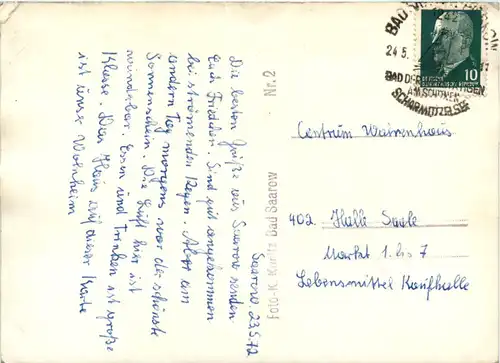 Saarow. 23.5.72
Die besten Grüße aus Saarow senden
Euch Friedchen. Sind gut angekommen
bei strömenden Regen. Aber am
andern Tag morgens war der schönste
Sonnenschein. Die Luft hier ist
wunderbar. Essen und Trinken ist große
Klasse. Das Haus auf dieser Karte
ist unser Wohnheim
Foto-K. Bad Saarow Nr. 2
BAD
24.5.
BAD DER
AM SCHÖNEN
SCHARMÜTZELSEE
10
Centrum Warenhaus
402. Halle Saale
Markt 1. bis 7
Lebensmittel Kaufhalle